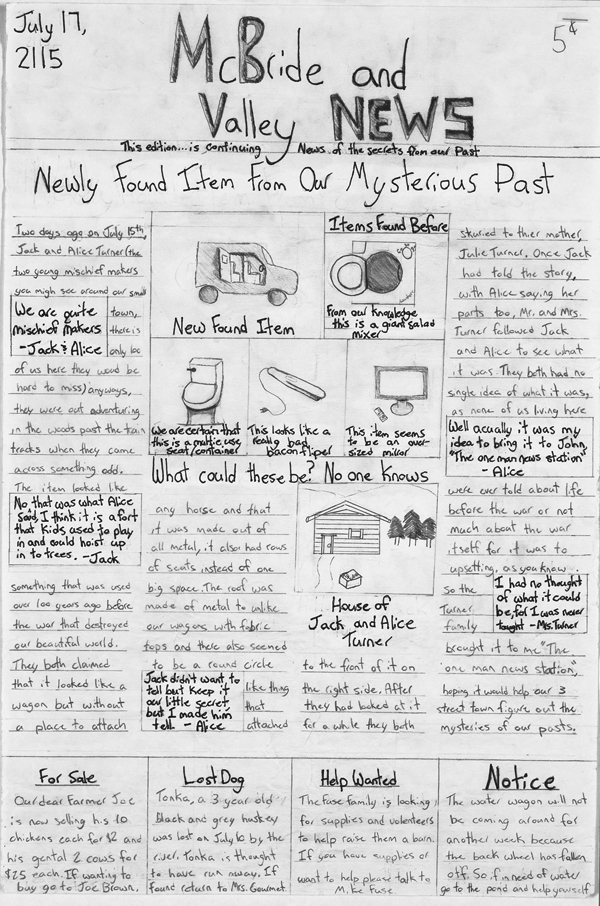 July 17,
2115
5¢
McBride and
Valley NEWS
This edition...is continuing News of the secrets from our Past
Newly Found Item From Our Mysterious Past
Two days ago on July 15th,
Jack and Alice Turner(the
two young mischief makers
you migh see around our small
We are quite
mischief makers
-Jack & Alice
town,
there is
only 100
of us here they woud be
hard to miss) anyways,
they were out adventuring
in the woods past the train
tracks when they came
across something odd.
The item looked like
No that was what Alice
said, I think it is a fort
that kids used to play
in and could hoist up
in to trees. -Jack
something that was used
over 100 years ago before
the war that destroyed
our beautiful world.
They both claimed
that it looked like a
wagon but without
a place to attach
New Found Item
Items Found Before
From our knowledge
this is a giant salad
mixer
We are certain that
this is a multie use
seat/container
This looks like a
really bad
bacon fliper
This item seems
to be an over-
sized mirror
What could these be? No one knows
any horse and that
it was made out of
all metal, it also had rows
of seats instead of one
big space. The roof was
made of metal to unlike
our wagons with fabric
tops and there also seemed
to be a round circle
Jack didn't want, to
tell but keep it
our little secret
but I made him
tell. - Alice
like thing
that
attached
House of
Jack and Alice
Turner
to the front of it on
the right side. After
they had looked at it
for a while they both
skuried to thier mother,
Julie Turner. Once Jack
had told the story,
with Alice saying her
parts too, Mr. and Mrs.
Turner followed Jack
and Alice to see what
it was. They both had no
single idea of what it was,
as none of us living here
Well acually it was my
idea to bring it to John,
"The one man news station"
- Alice
were ever told about life
before the war or not
much about the war
itself for it was to
upsetting, as you know.
So the
Turner
family
I had no thought
of what it could
be, for I was never
taught - Ms. Turner
brought it to me "The
one man news station",
hoping it would help our 3
street town figure out the
mysteries of our pasts.
For Sale
Our dear Farmer Joe
is now selling his 10
chickens each for $2 and
his gental 2 cows for
$25 each. If wanting to
buy go to Joe Brown.
Lost Dog
Tonka, a 3 year old
Black and grey huskey
was lost on July 10 by the
river. Tonka is thought
to have run away. If
found return to Mrs. Gourmet.
Help Wanted
The Fuse family is looking
for supplies and volenteers
to help raise them a barn.
If you have supplies or
want to help please talk to
Mike Fuse
Notice
The water wagon will not
be coming around for
another week because
the back wheel has fallen
off. So if in need of water
go to the pond and help yourself